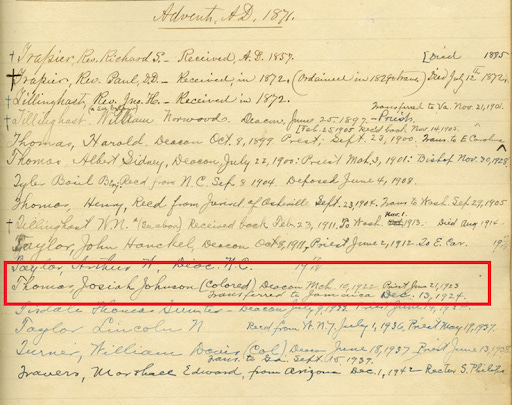 Advent, A.D. 1871.
† Trapier, Rev. Richard S. - Received, A.D. 1857. [Died 1895
† Trapier, Rev. Paul, D.D. - Received, in 1872. (Ordained in 1829) Died July 12th 1872.
† Tillinghast, Rev. Jno. H. - Received in 1872.
Transferred to Va. Nov. 21, 1901.
† Tillinghast, William Norwood. Deacon, June 25, 1899 - Priest
[Feb. 25 1905 Rec'd back Nov. 14 1902.
Thomas, Harold. Deacon Oct 8, 1899 Priest, Sept. 23, 1900. Trans. to E Carolina
Thomas, Albert Sidney, Deacon, July 22, 1900: Priest Mch. 3, 1901: Bishop Nov 30, 1928
Tyler Rec'd from N.C. Sep. 8 1904 Deposed June 4, 1908.
Thomas, Henry, Rec'd from Asheville Sept. 23, 1904. Trans. to Wash Sep 29, 1905
† Tillinghast W.N. (as above) Received back Feb. 23, 1911, To Wash. Nov. 1. 1913. Died Aug 1916.
Taylor, John Hanckel, Deacon Oct 8, 1911, Priest June 2, 1912. To E. Car.
Taylor, Arthur W. Deac. N.C.
Thomas, Josiah Johnson (Colored) Deacon Mch. 10, 1922 Priest June 21, 1923
Transferred to Jamaica Dec. 13, 1924.
Tisdale Thomas Sumter - Deacon July 9, 1932 Priest June 19, 1934
Taylor Lincoln N Rec'd from W. N.Y. July 1, 1936, Priest May 19, 1937.
Turner, William (Col) Deacon June 18, 1937 - Priest June 13, 1938
Trans. to Ga. Sept. 15 1939.
Travers, Marshall Edward, from Arizona Dec. 1, 1942 - Rector S. Philips